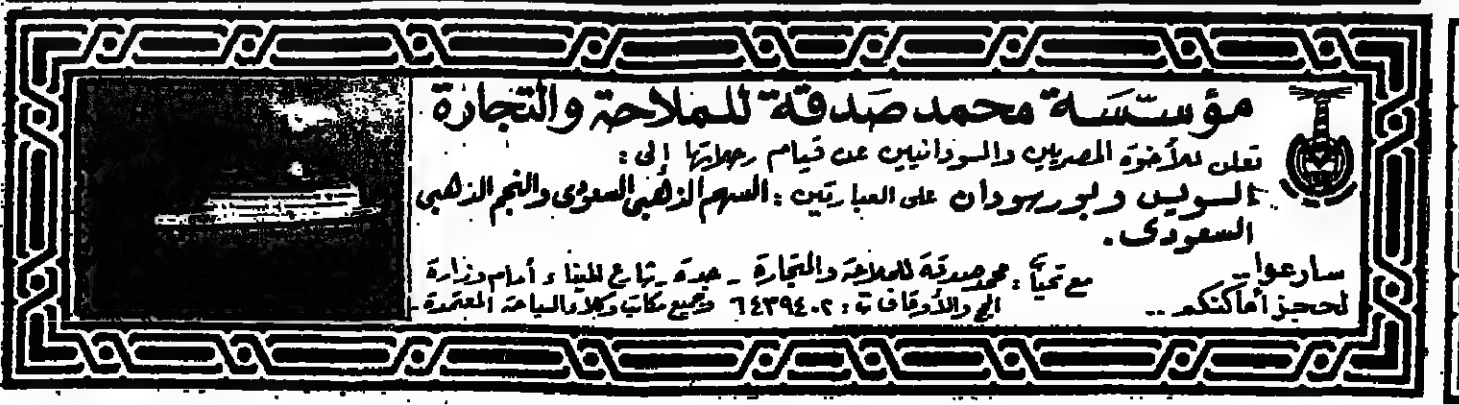 مؤسسة محمد صدقة للملاحة والتجارة
تعلن للأخوة المصريين والسودانيين عن قيام رحلاتها إلى :
السويس وبورسودان على العبارتين : السهم الذهبي السعودي والنجم الذهبي
السعودي .
سارعوا ..
لحجز أماكنكم ..
مع تحيات : محمد صدقة للملاحة والتجارة - جدة - شارع الميناء أمام وزارة
الحج والأوقاف ت : ٦٤٣٩٤٠٢ وجميع مكاتب وكلاء السياحة المعتمدة -